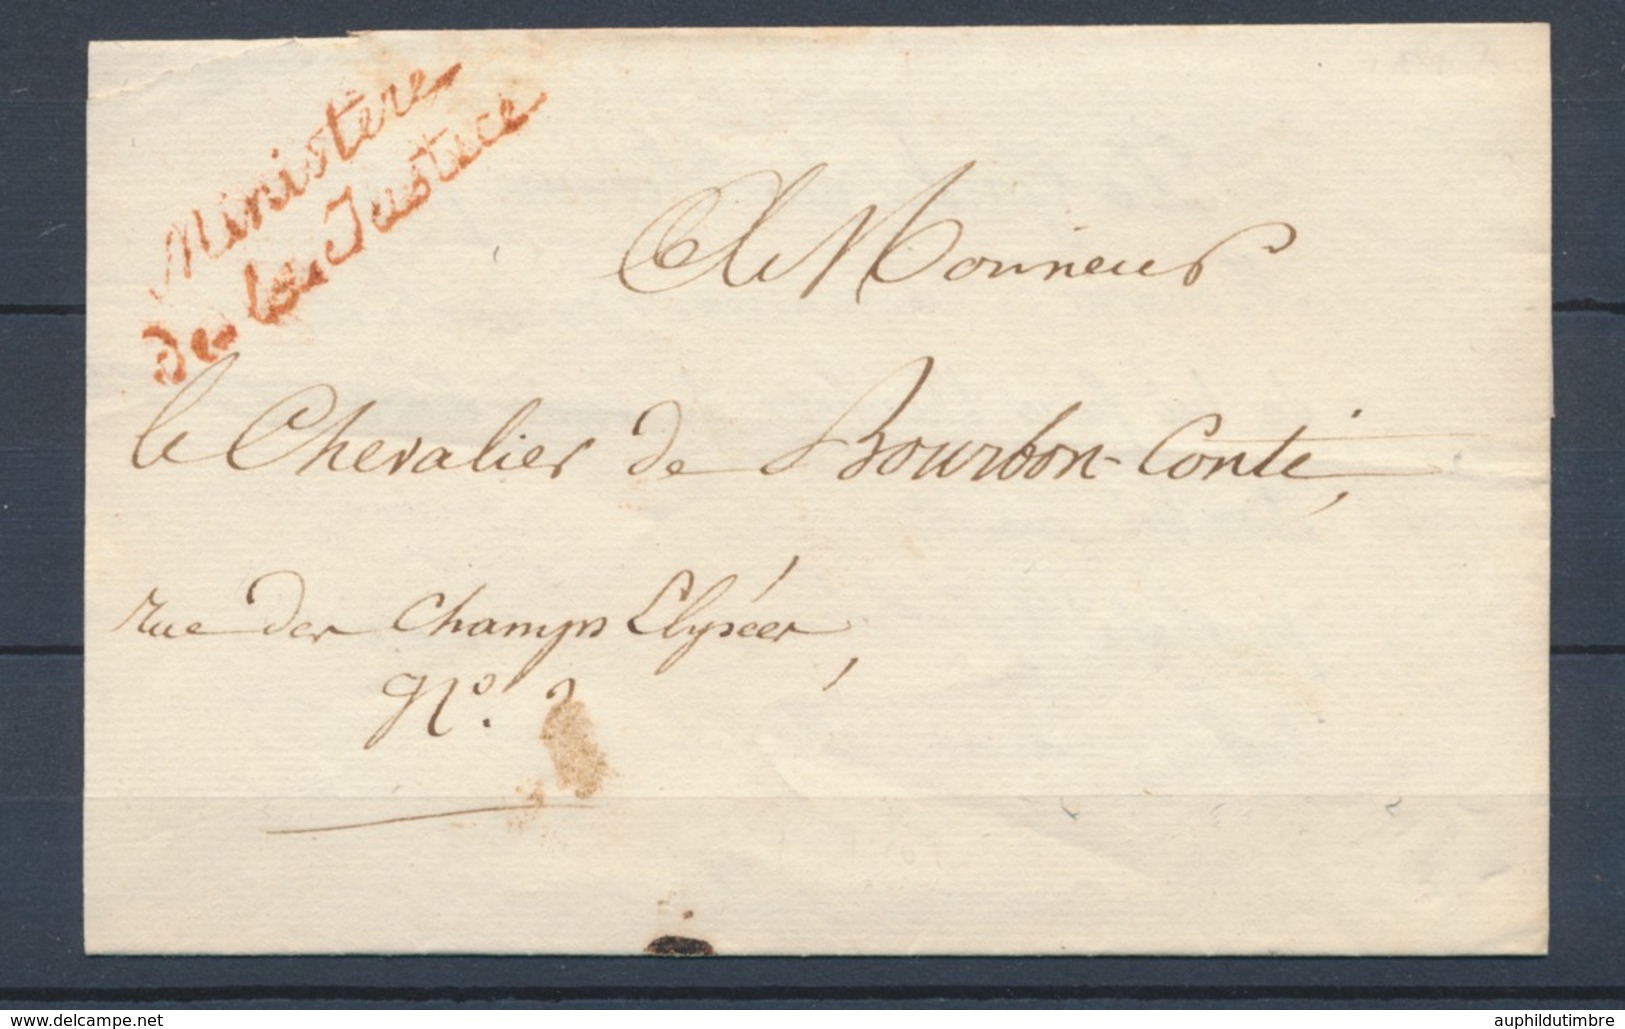 Ministère
de la Justice
A Monsieur
le Chevalier de Bourbon-Conti,
rue des Champs Elysées,
N.º
delcampe.net
auphildutimbre